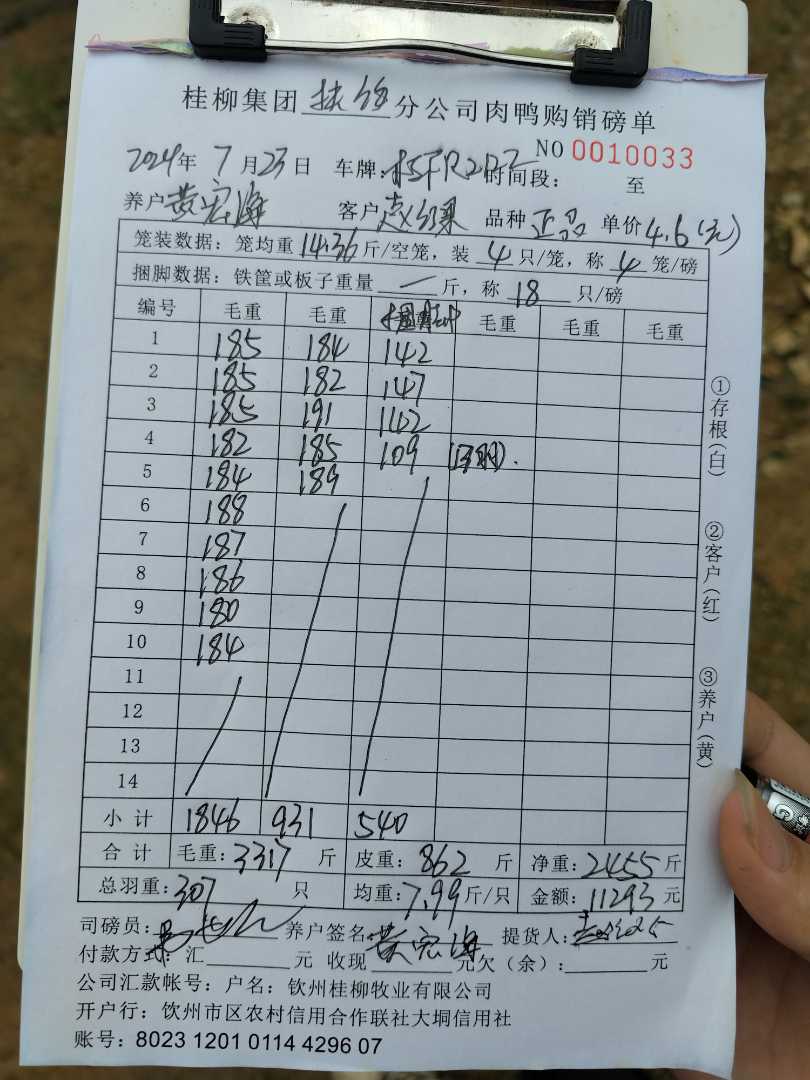 桂柳集团 分公司肉鸭购销磅单
NO 0010033
2024年 7月23日 车牌: 时间段: 至
养户 黄宏海 客户 赵 品种 正品 单价 4.6(元)
笼装数据: 笼均重 14.36 斤/空笼, 装 4 只/笼, 称 4 笼/磅
捆脚数据: 铁筐或板子重量 — 斤, 称 18 只/磅
编号 毛重 毛重 毛重 毛重 毛重
1 185 184 142
2 185 182 147
3 185 191 142
4 182 185 109
5 184 189
6 188
7 187
8 186
9 180
10 184
11
12
13
14
小计 1846 931 540
合计 毛重: 3317 斤 皮重: 862 斤 净重: 2455 斤
总羽重: 307 只 均重: 7.99 斤/只 金额: 11293 元
司磅员: 养户签名 黄宏海 提货人:
付款方式: 汇 元 收现 元 欠(余): 元
公司汇款帐号: 户名: 钦州桂柳牧业有限公司
开户行: 钦州市区农村信用合作联社大垌信用社
账号: 8023 1201 0114 4296 07
①存根(白)
②客户(红)
③养户(黄)